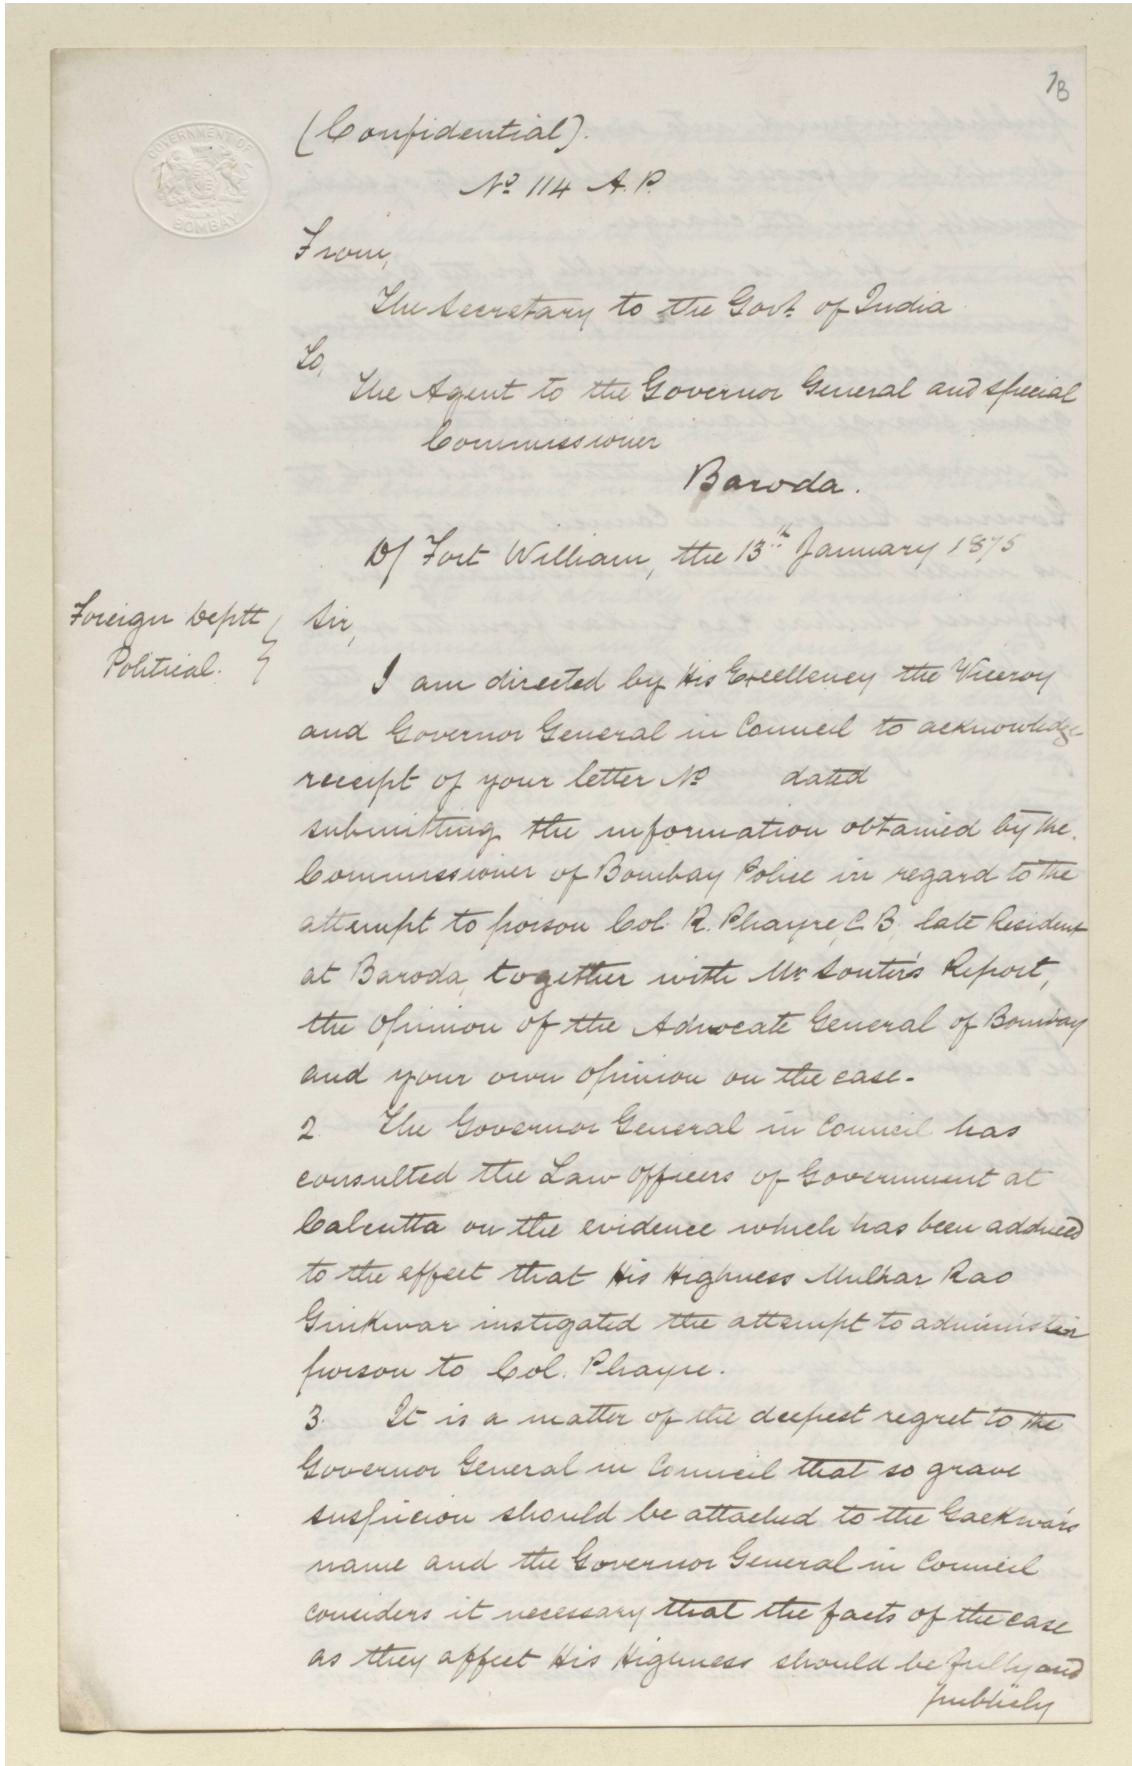 7B
GOVERNMENT OF
BOMBAY
(Confidential).
No 114 A. P.
From,
The Secretary to the Govt. of India
To,
The Agent to the Governor General and special
Commissioner
Baroda.
D/ Fort William, the 13th January 1875
Foreign Deptt
Political.
Sir,
I am directed by His Excellency the Viceroy
and Governor General in Council to acknowledge
receipt of your letter No dated
submitting the information obtained by the
Commissioner of Bombay Police in regard to the
attempt to poison Col. R. Phayre, C. B. late Resident
at Baroda, together with Mr Souter's Report,
the Opinion of the Advocate General of Bombay
and your own opinion on the case.
2. The Governor General in Council has
consulted the Law Officers of Government at
Calcutta on the evidence which has been adduced
to the effect that His Highness Mulhar Rao
Guikwar instigated the attempt to administer
poison to Col. Phayre.
3. It is a matter of the deepest regret to the
Governor General in Council that so grave
suspicion should be attached to the Gaekwar's
name and the Governor General in Council
considers it necessary that the facts of the case
as they affect His Highness should be fully and
publicly